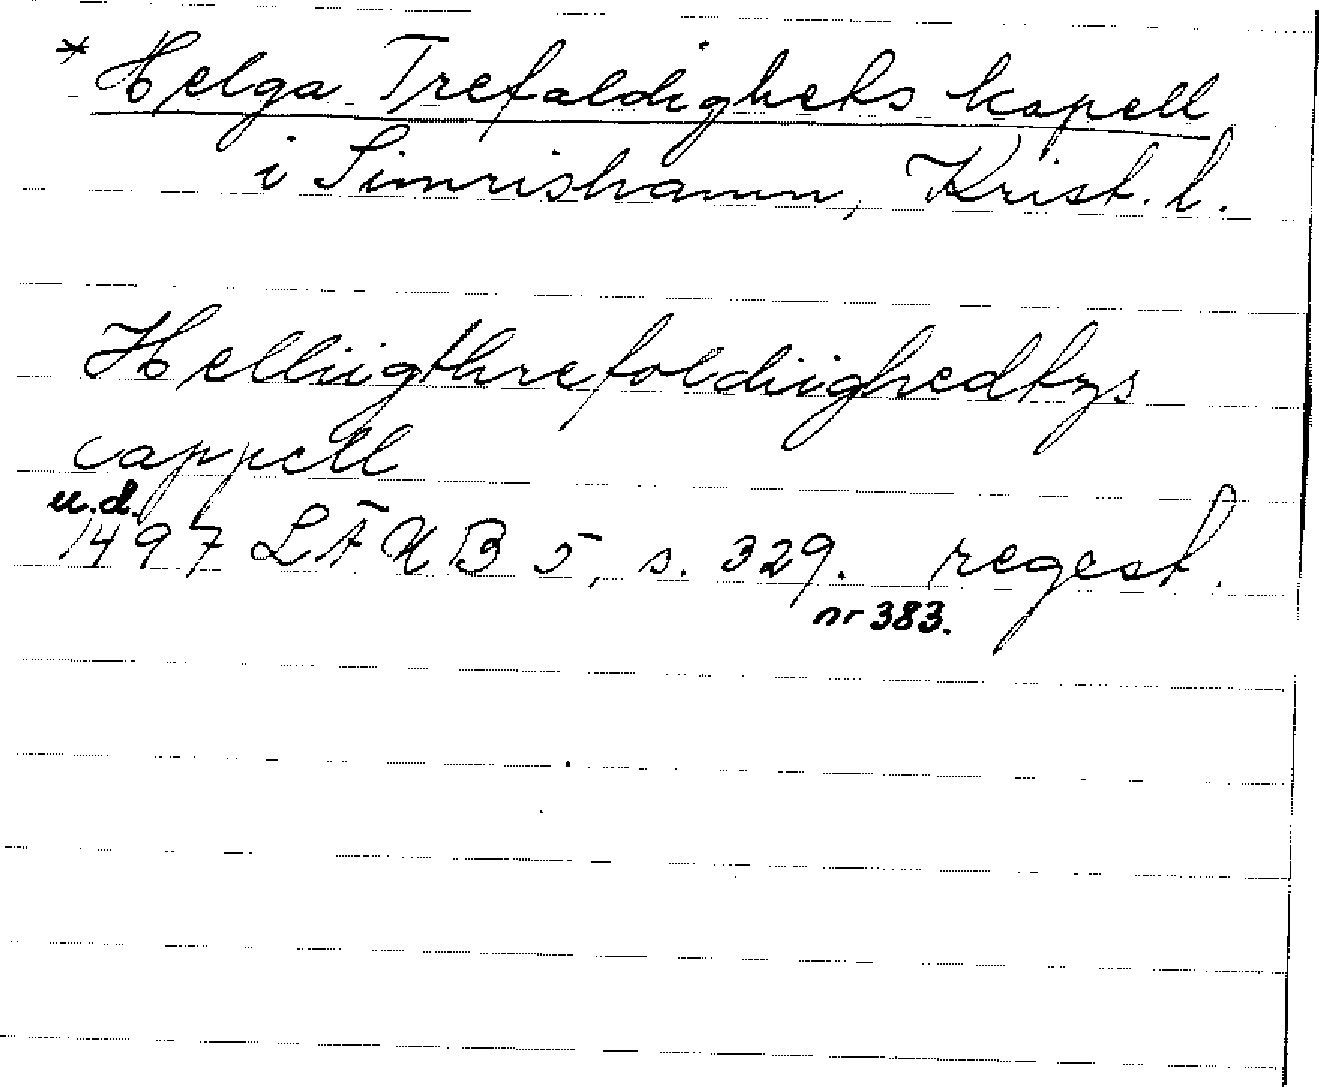 * Helga Trefaldighets kapell
i Simrishamn, Krist. l.
Helliigthrefoldiighedtzs
cappell
u.d.
1497 LÄUB 5, s. 329. regest.
nr 383.